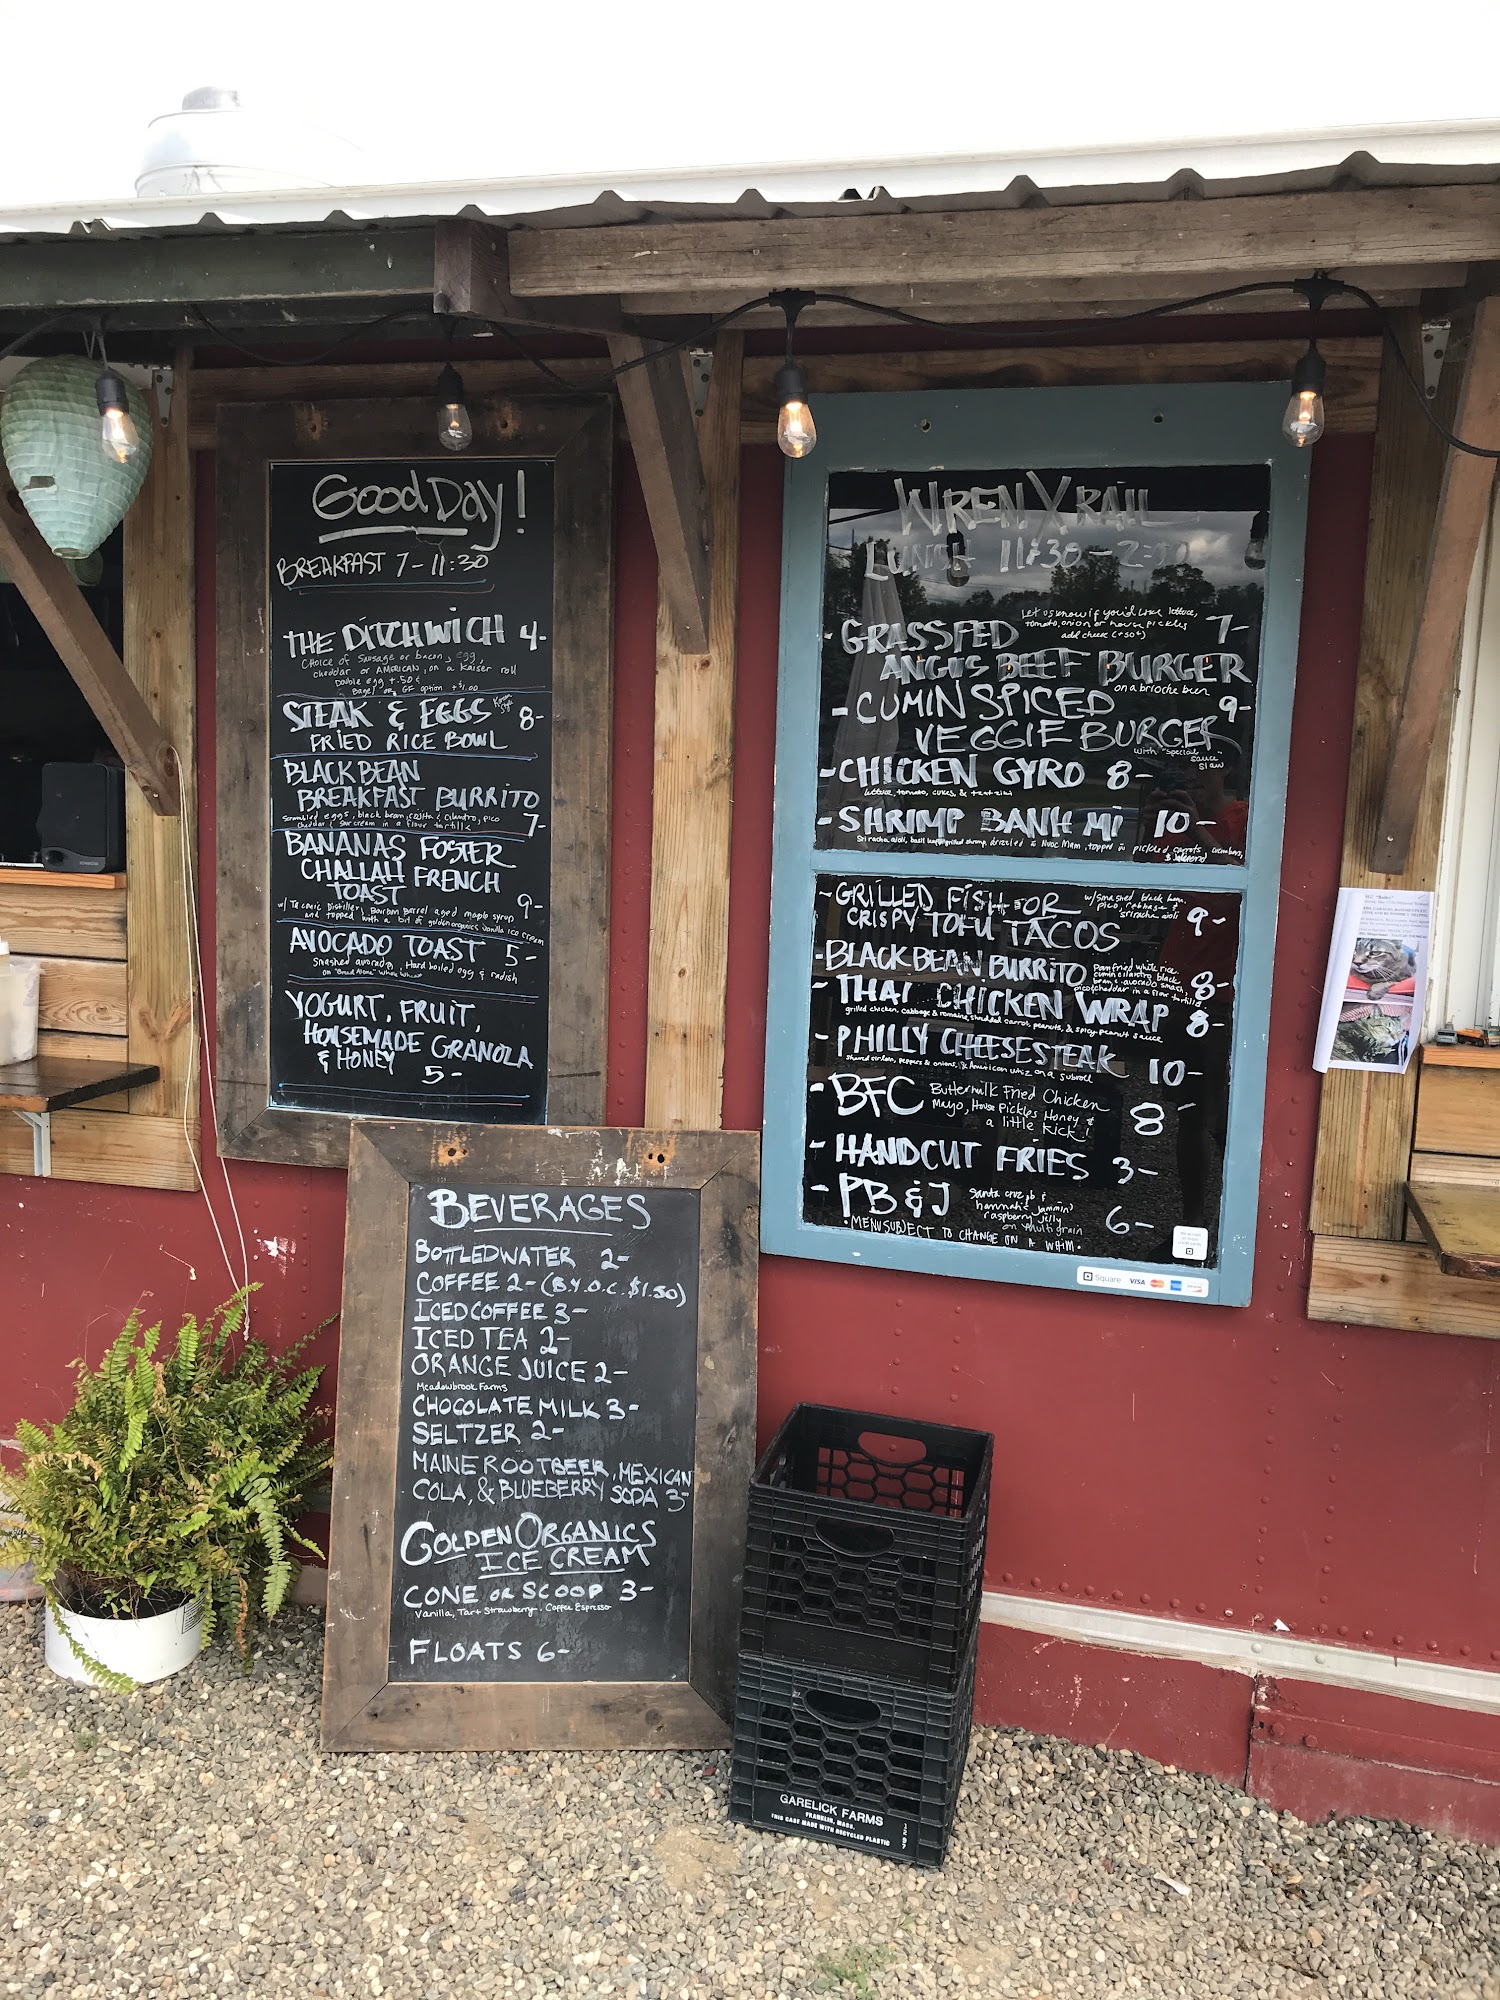 Good Day!
BREAKFAST 7-11:30
THE DITCHWICH 4-
Choice of Sausage or bacon, egg
cheddar or AMERICAN, on a Kaiser roll
Double egg +.50¢
Bagel or GF option +$1.00
STEAK & EGGS Korean Style 8-
FRIED RICE BOWL
BLACK BEAN
BREAKFAST BURRITO
Scrambled eggs, black bean, cilantro, pico
cheddar & sour cream in a flour tortilla 7-
BANANAS FOSTER
CHALLAH FRENCH
TOAST 9-
w/ Taconic Distillery Bourbon Barrel aged maple syrup
and topped with a bit of golden organics vanilla ice cream
AVOCADO TOAST 5-
Smashed avocado, Hard boiled egg & radish
on "Bread Alone" Whole Wheat
YOGURT, FRUIT,
HOUSEMADE GRANOLA
& HONEY
5-
WREN X RAIL
LUNSH 11:30-2:30
Let us know if you'd like lettuce,
tomato, onion or house pickles
add cheese (+50¢)
- GRASSFED 7-
ANGUS BEEF BURGER
on a brioche bun
- CUMIN SPICED 9-
VEGGIE BURGER
with "special sauce" slaw
- CHICKEN GYRO 8-
lettuce, tomato, cukes, & tzatziki
- SHRIMP BANH MI 10-
Sriracha aioli, basil grilled shrimp drizzled in Nuoc Mam, topped w pickled carrots, cucumbers,
- GRILLED FISH OR w/ smashed black bean,
CRISPY TOFU TACOS pico, cabbage & sriracha aioli 9-
- BLACK BEAN BURRITO 8-
Pan fried white rice,
cumin cilantro black
bean & avocado smash,
pico & cheddar in a flour tortilla
- THAI CHICKEN WRAP 8-
grilled chicken, cabbage & romaine, shredded carrot, peanuts, & spicy peanut sauce
- PHILLY CHEESESTEAK 10-
shaved sirloin, peppers & onions, & American whiz on a sub roll
- BFC Buttermilk Fried Chicken
Mayo, House Pickles Honey &
a little kick! 8-
- HANDCUT FRIES 3-
- PB & J santa cruz pb &
hannah's jammin'
raspberry jelly
on multigrain 6-
• MENU SUBJECT TO CHANGE ON A WHIM •
Square VISA
BEVERAGES
BOTTLED WATER 2-
COFFEE 2- (B.Y.O.C. $1.50)
ICED COFFEE 3-
ICED TEA 2-
ORANGE JUICE 2-
Meadowbrook Farms
CHOCOLATE MILK 3-
SELTZER 2-
MAINE ROOTBEER, MEXICAN
COLA, & BLUEBERRY SODA 3-
GOLDEN ORGANICS
ICE CREAM
CONE OR SCOOP 3-
Vanilla, Tart Strawberry, Coffee Espresso
FLOATS 6-
GARELICK FARMS
FRANKLIN, MASS.
THIS CASE MADE WITH RECYCLED PLASTIC